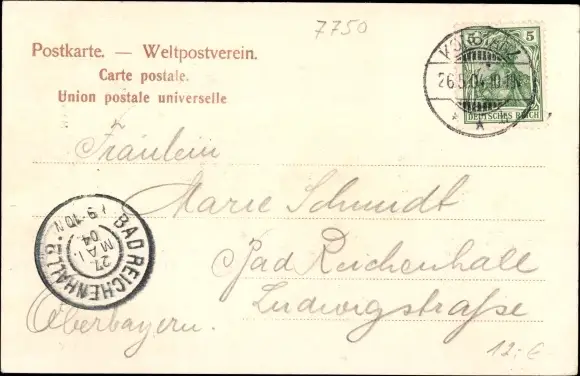 7750
Postkarte. — Weltpostverein.
Carte postale.
Union postale universelle
5 5
DEUTSCHES REICH
KONSTANZ
26.5.04.10-11
* A *
Fräulein
Marie Schmidt
Bad Reichenhall
Ludwigstraße
Oberbayern.
BAD REICHENHALL
27.
MAI.
04
12.-€